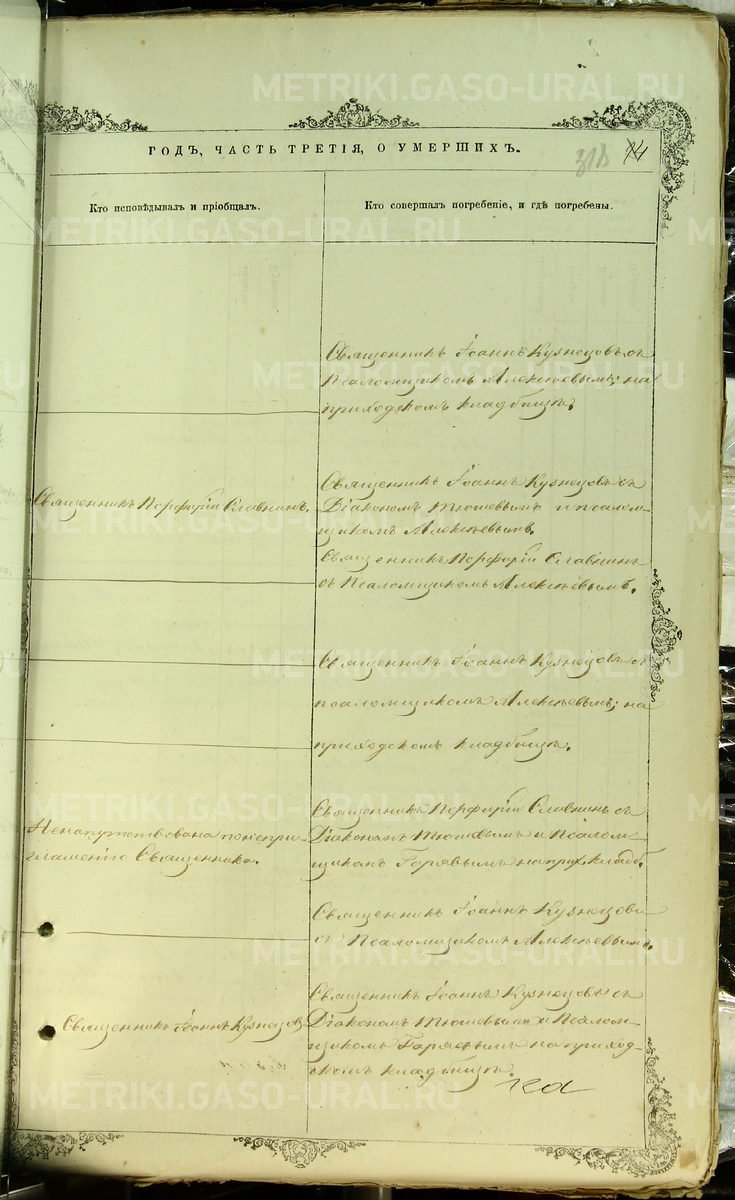 METRIKI.GASO-URAL.RU
ГОДЪ, ЧАСТЬ ТРЕТІЯ, О УМЕРШИХЪ.
Кто исповѣдывалъ и пріобщалъ.
Кто совершалъ погребеніе, и гдѣ погребены.
Священникъ Іоаннъ Кузнецовъ съ
Псаломщикомъ Алексѣевымъ; на
приходскомъ кладбищѣ.
Священникъ Порфирій Славнинъ.
Священникъ Іоаннъ Кузнецовъ съ
Діакономъ Тюшевымъ и псалом-
щикомъ Алексѣевымъ.
Священникъ Порфирій Славнинъ
съ Псаломщикомъ Алексѣевымъ.
Священникъ Іоаннъ Кузнецовъ съ
псаломщикомъ Алексѣевымъ; на
приходскомъ кладбищѣ.
Ненапутствована по непри-
глашенію Священника.
Священникъ Порфирій Славнинъ съ
Діакономъ Тюшевымъ и Псалом-
щикомъ на прих. кладб.
Священникъ Іоаннъ Кузнецовъ
съ Псаломщикомъ Алексѣевымъ.
Священникъ Іоаннъ Кузнецовъ
Священникъ Іоаннъ Кузнецовъ съ
Діакономъ Тюшевымъ и Псалом-
щикомъ на приход-
скомъ кладбищѣ.